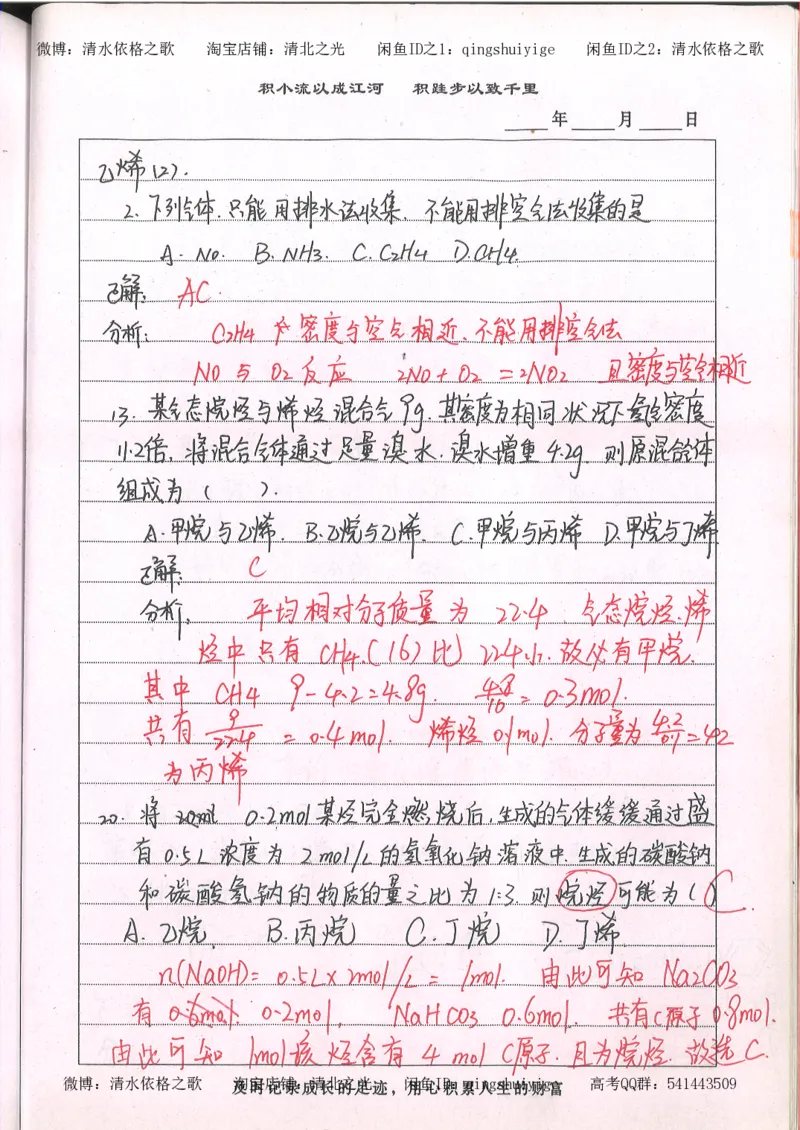 微博：清水依格之歌 淘宝店铺：清北之光 闲鱼ID之1：qingshuiyige 闲鱼ID之2：清水依格之歌
积小流以成江河 积跬步以致千里
年 月 日
乙烯(2).
2. 下列气体.只能用排水法收集、不能用排空气法收集的是
A. NO. B. NH3. C. C2H4 D. CH4.
正解: AC.
分析: C2H4 密度与空气相近、不能用排空气法
NO 与 O2 反应 2NO + O2 = 2NO2 且密度与空气相近
13. 某气态烷烃与烯烃混合气9g.其密度为相同状况下氢气密度
11.2倍, 将混合气体通过足量溴水.溴水增重4.2g. 则原混合气体
组成为( ).
A. 甲烷与乙烯. B. 乙烷与乙烯. C. 甲烷与丙烯 D. 甲烷与丁烯.
正解: C
分析. 平均相对分子质量为 22.4 . 气态烷烃.烯
烃中只有 CH4.(16) 比 22.4小. 故必有甲烷.
其中 CH4 9-4.2=4.8g. 4.8/16 = 0.3mol.
共有 9/22.4 = 0.4 mol. 烯烃 0.1mol. 分子量为 4.2/0.1=42
为丙烯
20. 将 0.2mol某烃完全燃烧后,生成的气体缓缓通过盛
有 0.5L 浓度为 2mol/L 的氢氧化钠溶液中.生成的碳酸钠
和碳酸氢钠的物质的量之比为 1:3. 则烷烃可能为( ) C.
A. 乙烷. B. 丙烷 C. 丁烷 D. 丁烯.
n(NaOH)= 0.5L×2mol/L = 1mol. 由此可知 Na2CO3
有 0.6mol. 0.2mol, NaHCO3 0.6mol. 共有C原子0.8mol.
由此可知 1mol该烃含有 4 mol C原子.且为烷烃.故选C.
微博：清水依格之歌 淘宝店铺：清北之光 闲鱼ID：qingshuiyige 高考QQ群：541443509
及时记录成长的足迹，用心积累人生的财富